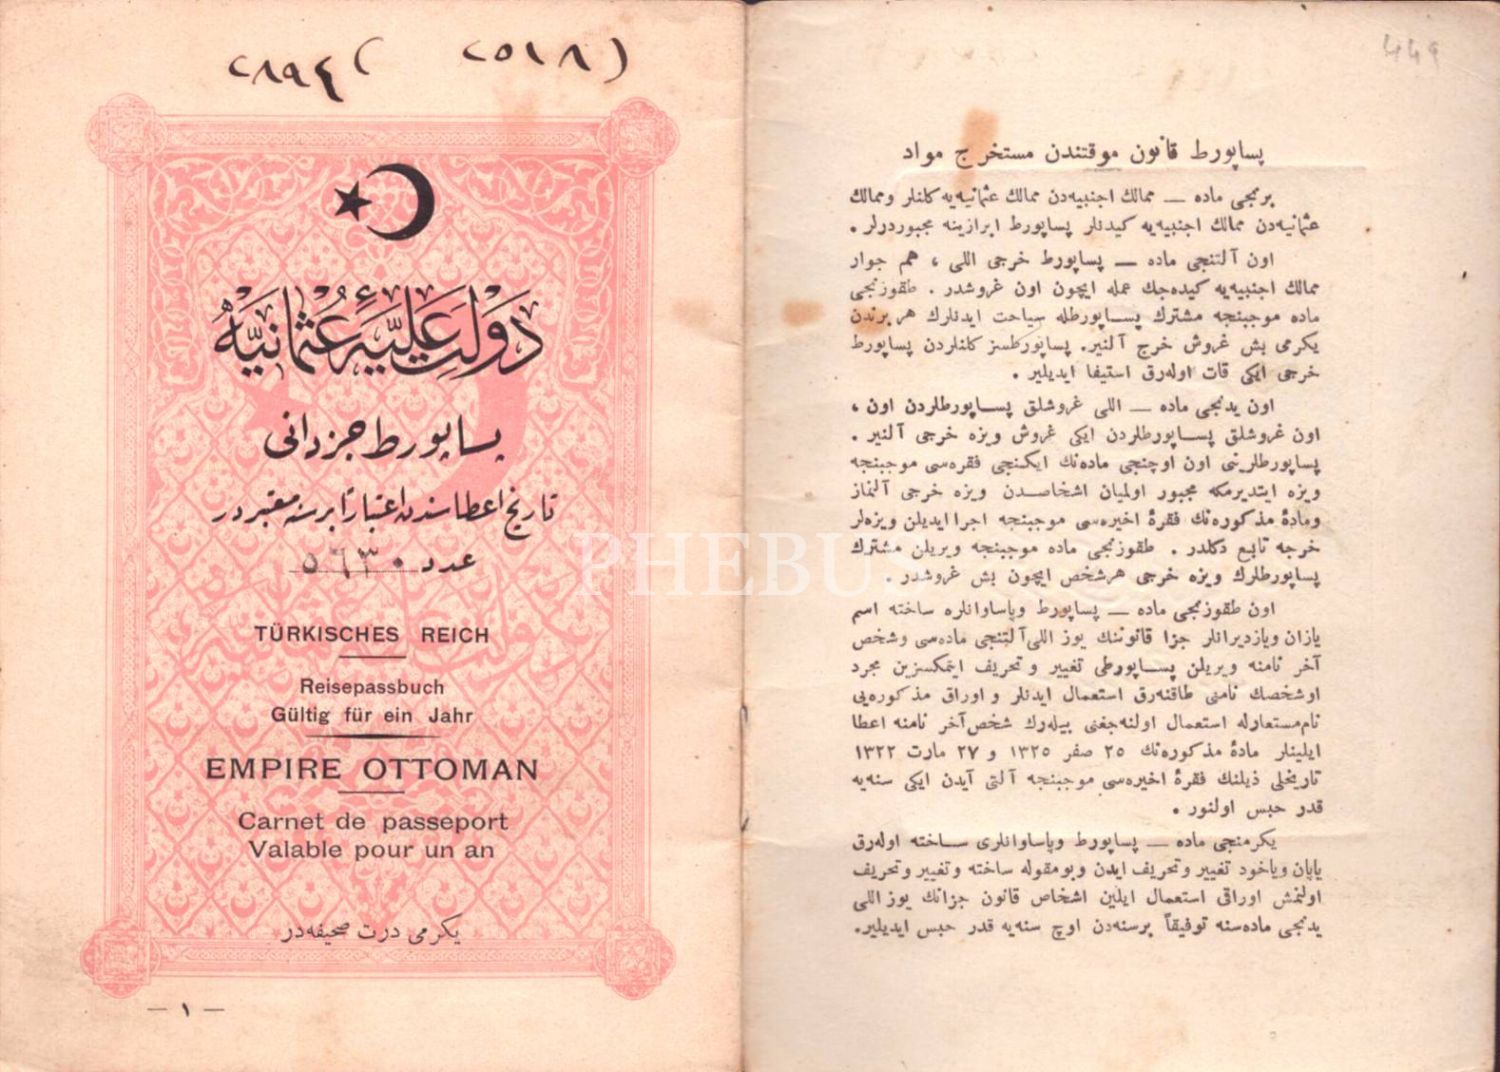 ٢٨٩٤٢ ٢٥١٨١
٤٤٩
دولت عليهٔ عثمانيه
پساپورط جزدانی
تاريخ اعطاسندن اعتباراً بر سنه معتبردر
عدد ٥٦٣٠
TÜRKISCHES REICH
Reisepassbuch
Gültig für ein Jahr
EMPIRE OTTOMAN
Carnet de passeport
Valable pour un an
يكرمی درت صحيفه‌در
— ١ —
PHEBUS
پساپورط قانون موقتندن مستخرج مواد
برنجی ماده — ممالك اجنبيه‌دن ممالك عثمانيه‌يه كلنلر وممالك
عثمانيه‌دن ممالك اجنبيه‌يه كيدنلر پساپورط ابرازينه مجبوردرلر .
اون آلتنجی ماده — پساپورط خرجی اللی ، هم جوار
ممالك اجنبيه‌يه كيده‌جك عمله ايچون اون غروشدر . طقوزنجی
ماده موجبنجه مشترك پساپورطله سياحت ايدنلرك هر برندن
يكرمی بش غروش خرج آلنير. پساپورطسز كلنلردن پساپورط
خرجی ايكی قات اوله‌رق استيفا ايديلير .
اون يدنجی ماده — اللی غروشلق پساپورطلردن اون ،
اون غروشلق پساپورطلردن ايكی غروش ويزه خرجی آلنير .
پساپورطلرينی اون اوچنجی ماده‌نك ايكنجی فقره‌سی موجبنجه
ويزه ايتديرمكه مجبور اولميان اشخاصدن ويزه خرجی آلنماز
ومادهٔ مذكوره‌نك فقرهٔ اخيره‌سی موجبنجه اجرا ايديلن ويزه‌لر
خرجه تابع دكلدر . طقوزنجی ماده موجبنجه ويريلن مشترك
پساپورطلرك ويزه خرجی هر شخص ايچون بش غروشدر .
اون طقوزنجی ماده — پساپورط وپاساوانلره ساخته اسم
يازان ويازديرانلر جزا قانوننك يوز اللی‌آلتنجی ماده‌سی وشخص
آخر نامنه ويريلن پساپورطی تغيير وتحريف ايتمكسزين مجرد
اوشخصك نامنی طاقنه‌رق استعمال ايدنلر و اوراق مذكوره‌يی
نام‌مستعارله استعمال اولنه‌جغنی بيله‌رك شخص آخر نامنه اعطا
ايلينلر مادهٔ مذكوره‌نك ٢٥ صفر ١٣٢٥ و ٢٧ مارت ١٣٢٢
تاريخلی ذيلنك فقرهٔ اخيره‌سی موجبنجه آلتی آيدن ايكی سنه‌يه
قدر حبس اولنور .
يكرمنجی ماده — پساپورط وپاساوانلری ساخته اوله‌رق
ياپان وياخود تغيير وتحريف ايدن وبومقوله ساخته وتغيير وتحريف
اولنمش اوراقی استعمال ايلين اشخاص قانون جزانك يوز اللی
يدنجی ماده‌سنه توفيقاً برسنه‌دن اوچ سنه‌يه قدر حبس ايديلير.